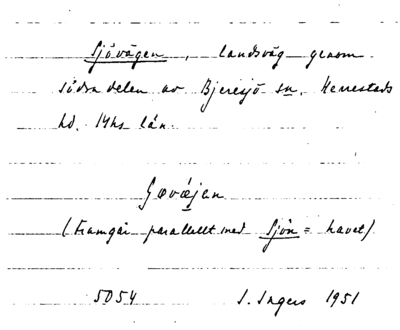 Sjövägen, landsväg genom
södra delen av Bjeresjö sn. Herrestads
hd. Mhs län.
(Framgår parallellt med Sjön = havet)
5054 I. Ingers 1951